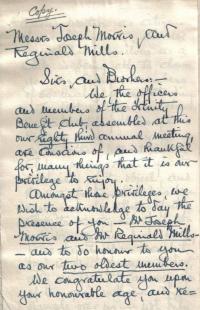 Copy.
Messrs Joseph Morris, and
Reginald Mills.
Sirs, and Brothers:—
We the officers
and members of the Trinity
Benefit Club, assembled at this
our eighty third annual meeting,
are conscious of, and thankful
for, many things that it is our
privilege to enjoy.
Amongst those privileges, we
wish to acknowledge to day the
presence of you — Mr Joseph
Morris and Mr Reginald Mills —
— and to do honour to you —
as our two oldest members.
We congratulate you upon
your honourable age, and re=